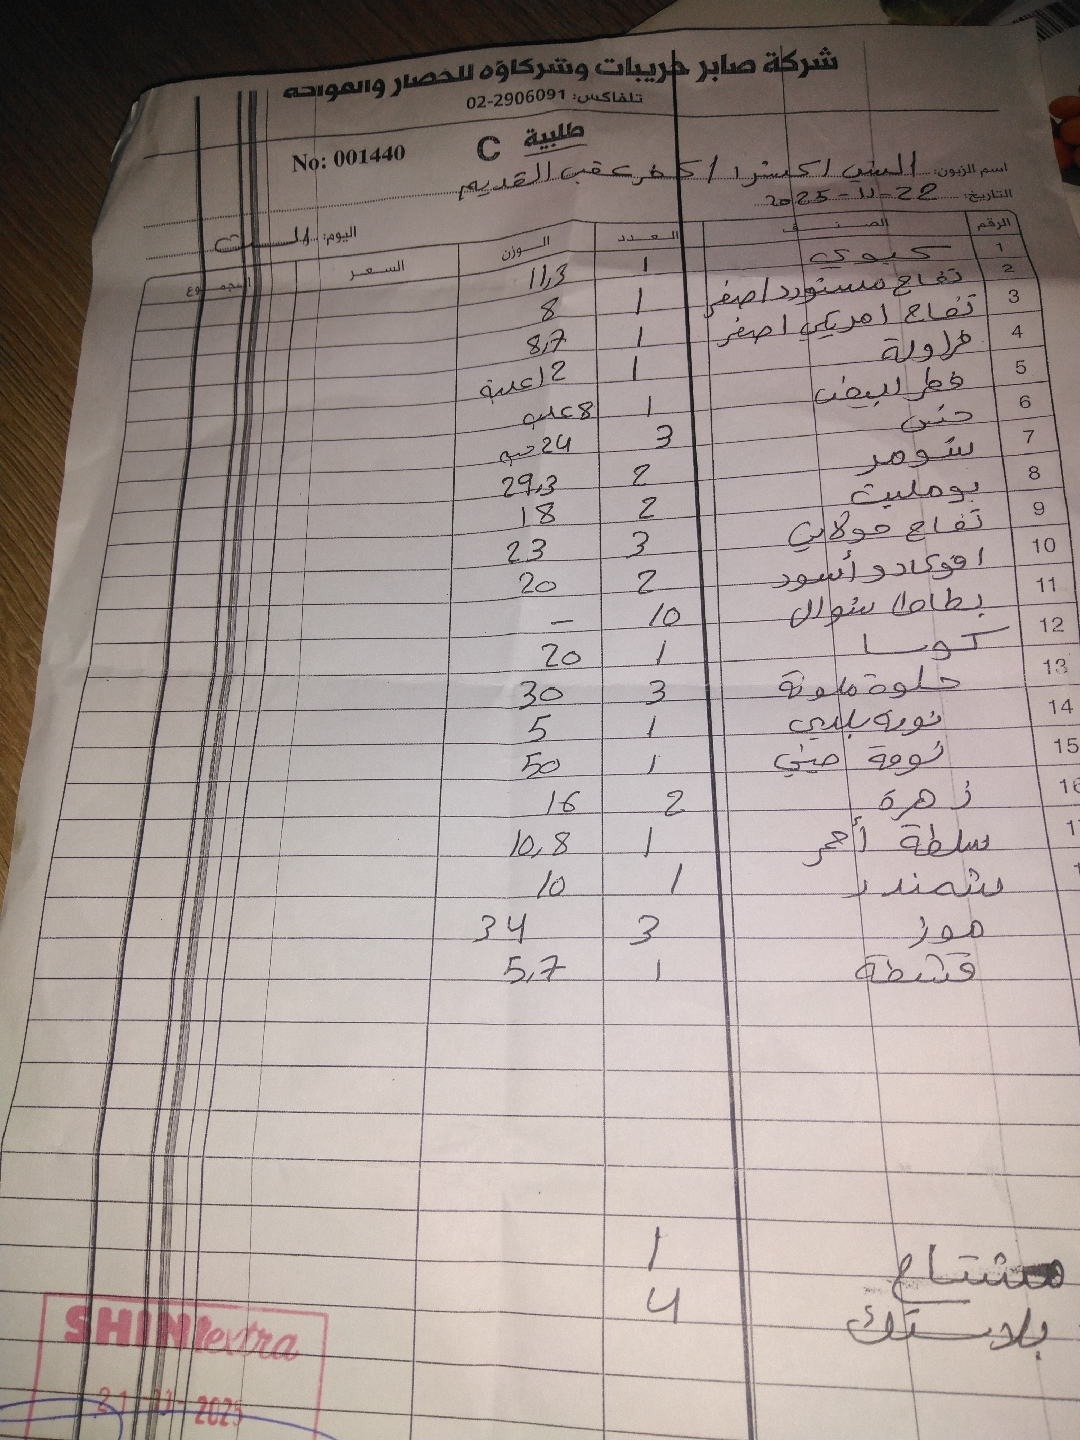 شركة صابر خريبات وشركاؤه للخضار والفواكه
تلفاكس: 02-2906091
طلبية C
No: 001440
اسم الزبون: الشني اكسترا / كفر عقب القديم
التاريخ: 22-11-2025
اليوم: السبت
الرقم الصنف العدد الوزن السعر المجموع
1 كيوي 1 11,3
2 تفاح مستورد اصفر 1 8
3 تفاح امريكي اصفر 1 8,7
4 فراولة 1 12 علبة
5 فطر ابيض 1 8 علب
6 خس 3 24 حبه
7 شومر 2 29,3
8 بومليت 2 18
9 تفاح جولاني 3 23
10 افوكادو أسود 2 20
11 بطاطا شوال 10 -
12 كوسا 1 20
13 حلوة ملونة 3 30
14 ثومه بلدي 1 5
15 ثومة صيني 1 50
16 زهرة 2 16
سلطة أحمر 1 10,8
شمندر 1 10
موز 3 34
قشطة 1 5,7
مشتاح 1
بلاستك 4
SHINI extra
21-11-2025